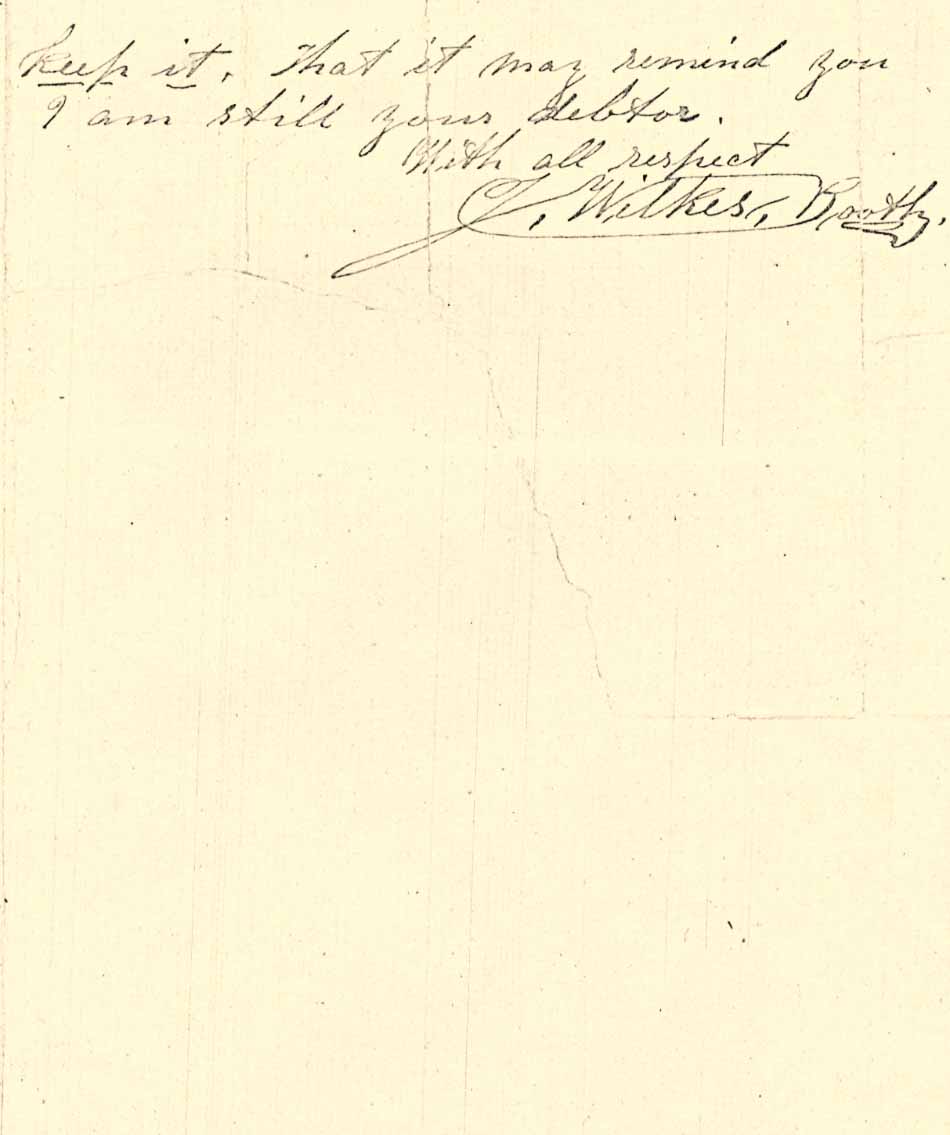 keep it, That it may remind you
I am still your debtor.
With all respect
J. Wilkes, Booth,